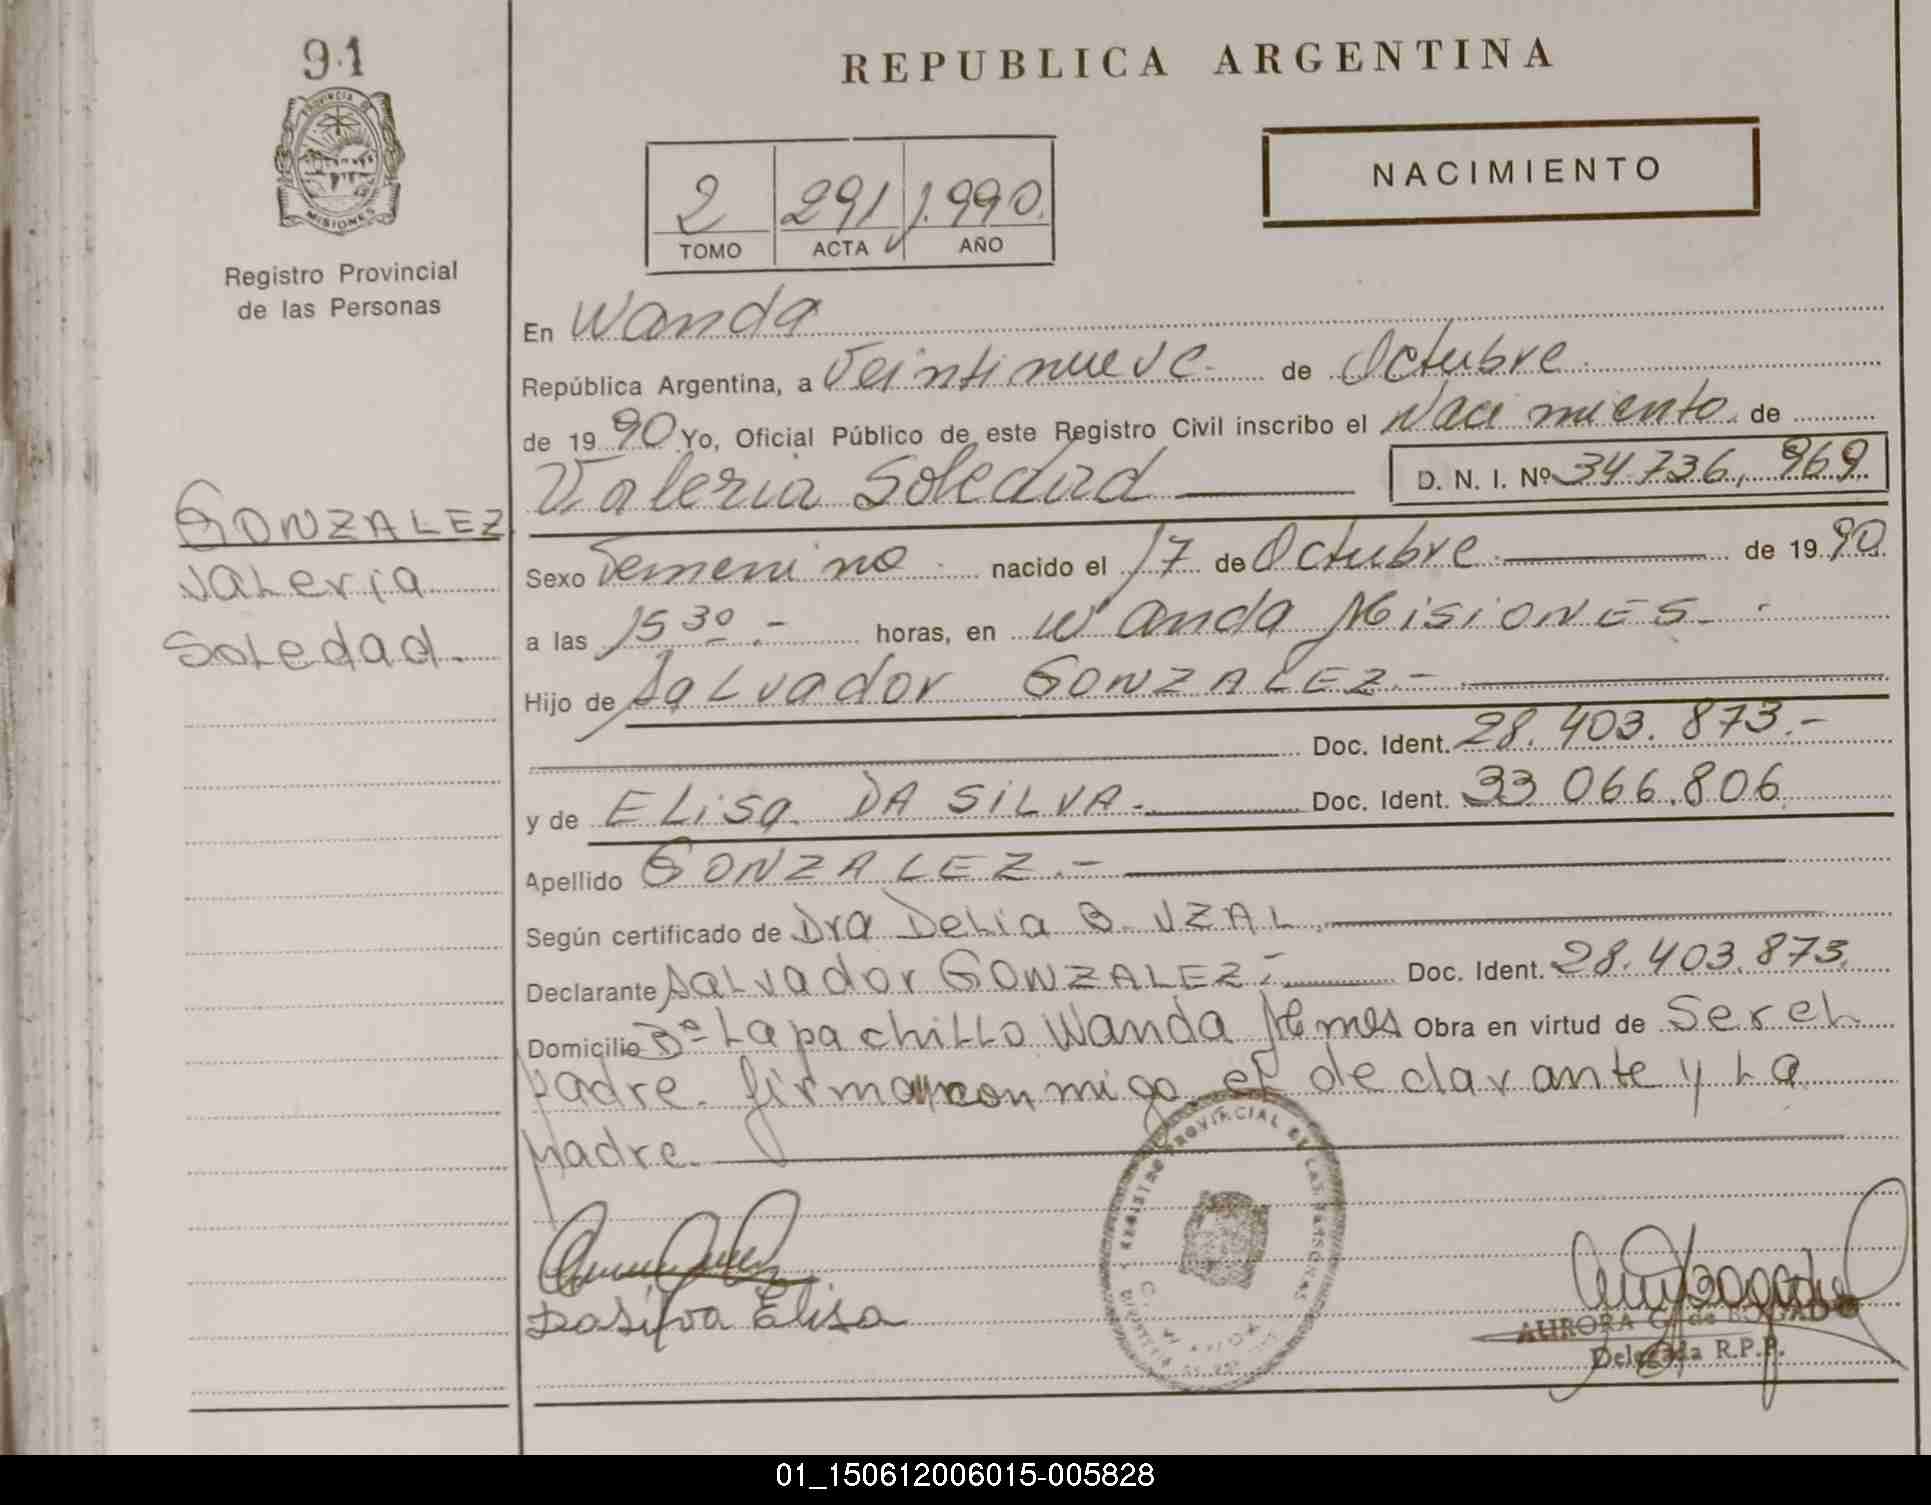 91
PROVINCIA DE
MISIONES
Registro Provincial
de las Personas
GONZALEZ
Valeria
Soledad.
REPUBLICA ARGENTINA
NACIMIENTO
2 291 1.990.
TOMO ACTA AÑO
En Wanda
República Argentina, a Veintinueve. de Octubre.
de 19 90 Yo, Oficial Público de este Registro Civil inscribo el Nacimiento. de
Valeria Soledad D. N. I. Nº 34.736.969
Sexo Femenino. nacido el 17 de Octubre. de 19 90.
a las 15 30.- horas, en Wanda MISIONES.-
Hijo de Salvador GONZALEZ.-
Doc. Ident. 28.403.873.-
y de ELisa. DA SILVA.- Doc. Ident. 33 066.806
Apellido GONZALEZ.-
Según certificado de Dra DeLia B. UZAL.
Declarante Salvador GONZALEZ.- Doc. Ident. 28.403.873.
Domicilio Bº Lapachillo Wanda Mnes Obra en virtud de Ser el
Padre. firman conmigo el declarante y La
Madre.
Dasilva Elisa
REGISTRO PROVINCIAL DE LAS PERSONAS
AURORA G. de BOGADO
Delegada R.P.P.
01_150612006015-005828